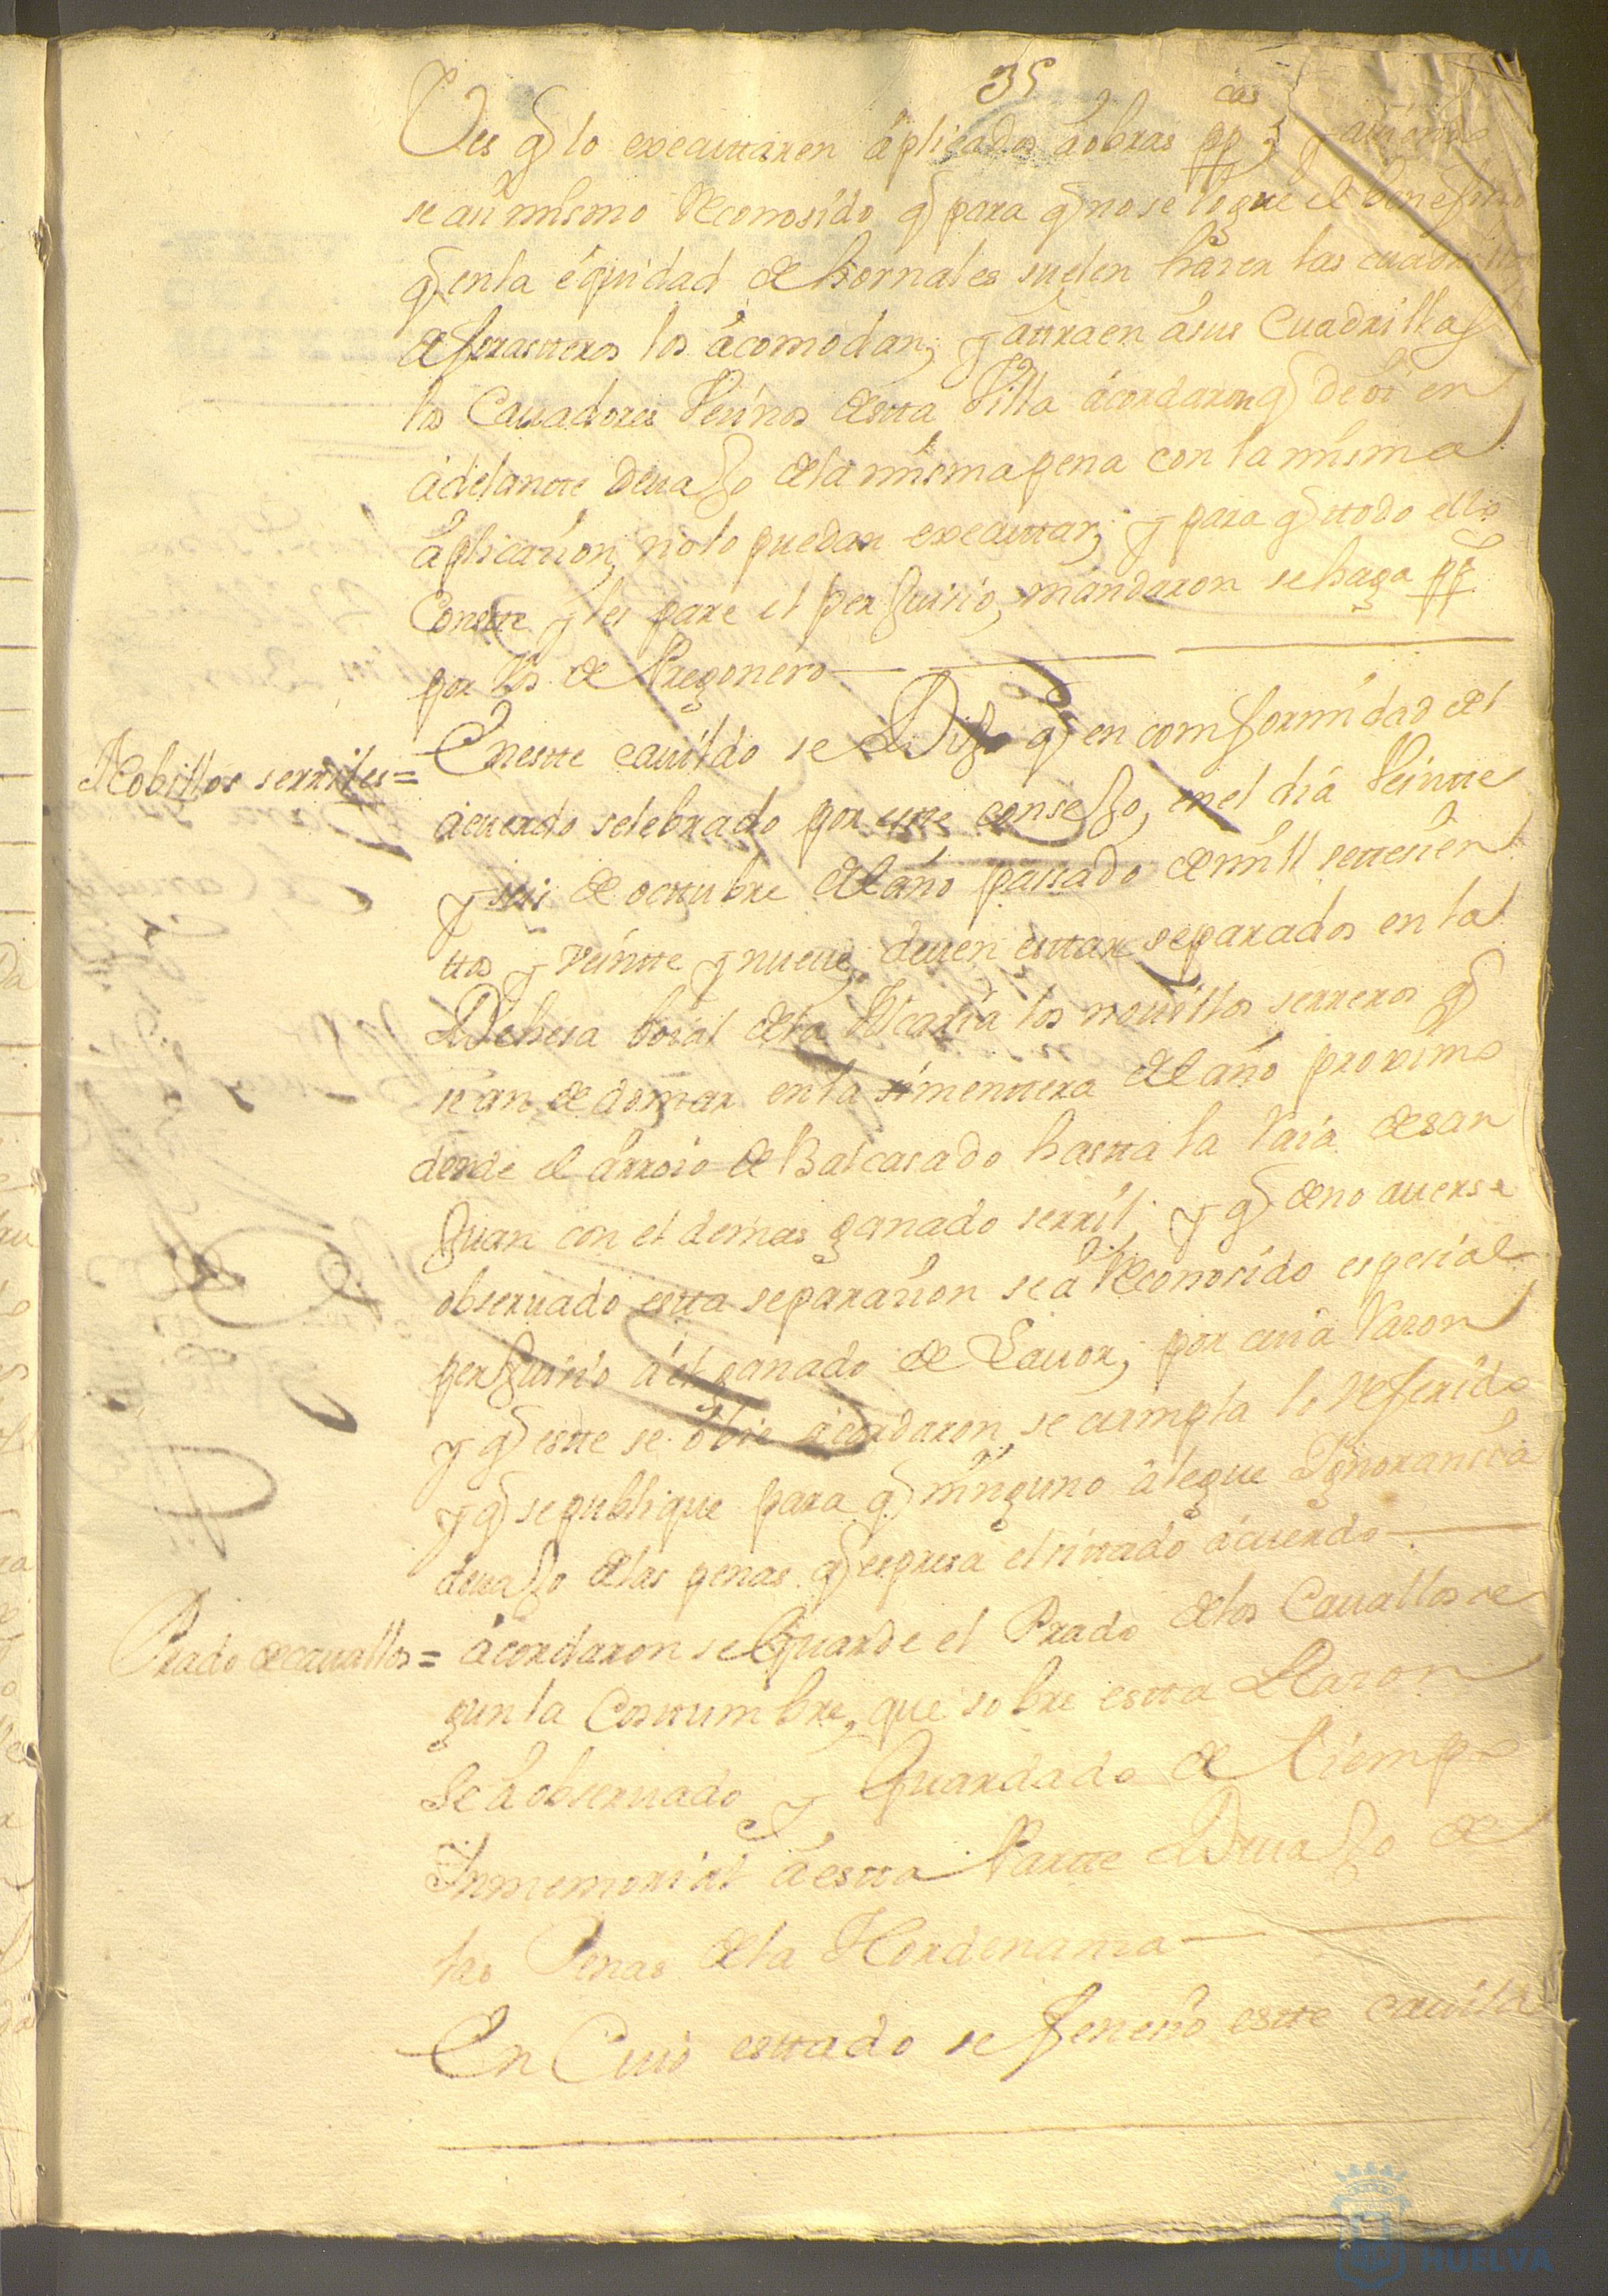 35
Ves q̃ lo executtaren áplicados áobras pp.cas y auiéndo
se aúi mismo Reconosido q̃ para q̃ no se logre el benefisio
q̃ en la équidad de hornales suelen hàzer las cuadrillas
de forastteros los ácomodan, y attraen ásus Cuadrillas
los Cauadores Vezinos destta Villa ácordaron q̃ de oi en
ádelantte devajo de la misma pena con la misma
áplicazion, no lo puedan executtar; y para q̃ ttodo ello
Constte y les pare el perjuizio, mandaron se haga pp.
por Vos de Pregonero
Nobillos serriles =
En estte cauildo se Dijo q̃ en comformidad del
ácuerdo selebrado por este consejo, en el dia Veintte
y seis de octtubre del año passado de mill settesien
ttos y veintte y nueue, deuen esttar separados en la
Dehesa boial de la Alcaria los nouillos serreros q̃
se an de domar en la simenttera del año proximo
desde el árroio de Balcasado hastta la Raia de san
Juan con el demas ganado serril; y q̃ de no auerse
obseruado estta separazion se á Reconosido espesial
perjuizio á el ganado de Lauor; por cuia Razon
y q̃ estte se óbie ácordaron se cumpla lo Referido
y q̃ se publique para q̃ ninguno álegue Ignoransia
deuajo de las penas q̃ espresa el sittado ácuerdo
Prado de cauallos =
ácordaron se Guarde el Prado de los Cauallos se
gun la Costtumbre, que sobre estta Razon
Se á obseruado y Guardado de tiempo
Inmemorial áestta Partte Deuajo de
las Penas de la Hordenanza
En Cuio esttado se fenesio estte cauildo
HUELVA